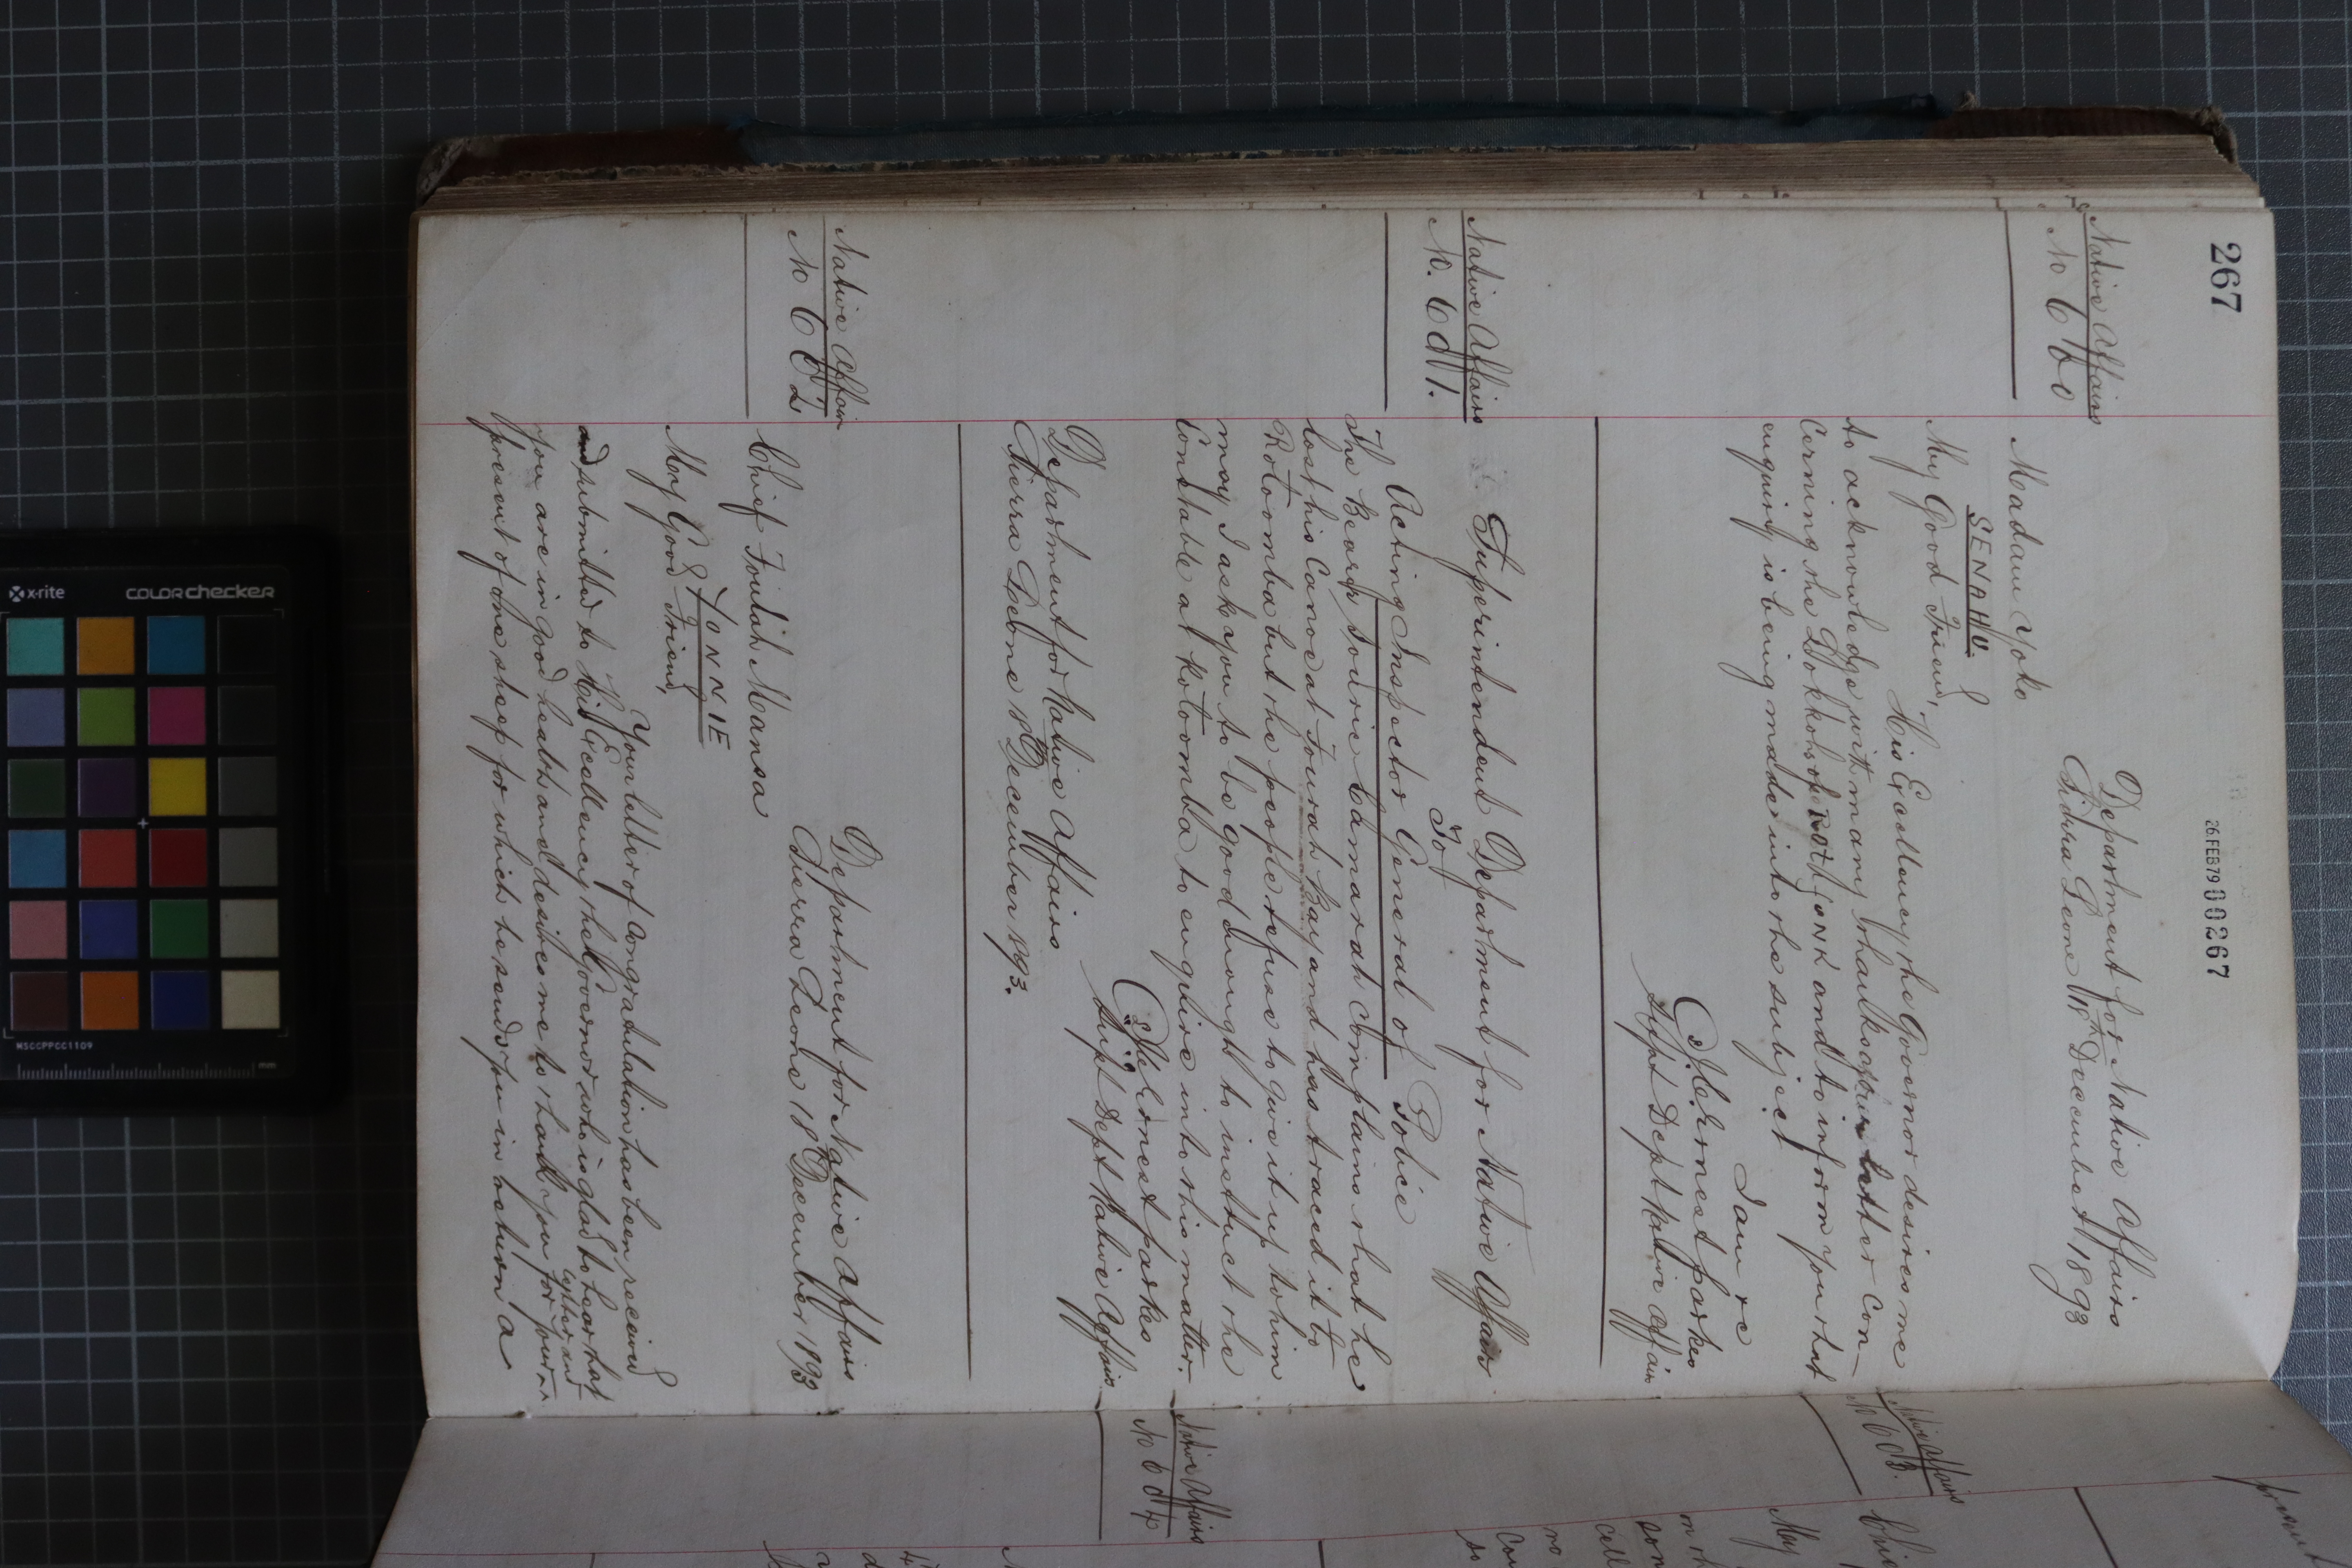 267
26 FEB 79 00267
Native Affairs
No 660
Department for Native Affairs
Sierra Leone 18th December 1893
Madam Yoko
SENAHU.
My Good Friend,
His Excellency the Governor desires me
to acknowledge with many thanks your letter con-
cerning the and to inform you that
enquiry is being made into the subject
I am &c
J. C. Ernest Parkes
Supt Dept Native Affairs
Native Affairs
No. 661.
Superintendent Department for Native Affairs
To
Acting Inspector General of Police
The Bearer Sourie Camarah complains that he
lost his Canoe at Fourah Bay and has traced it to
Rotoomba but the people refuse to give it up to him
may I ask you to be good enough to instruct the
Constable at Kotoomba to enquire into this matter.
J. C. Ernest Parkes
Supt Dept Native Affairs
Department for Native Affairs
Sierra Leone 18th December 1893.
Native Affairs
No 662
Department for Native Affairs
Sierra Leone 18th December 1893
Chief Foulah Mansa
YONNIE
My Good Friend,
Your letter of congratulation has been received
and submitted to His Excellency the Governor who is glad to hear that
you are in good health and desires me to thank you for your letter and
present of one sheep for which he sends you in return a
Native Affairs
No 663.
Native Affairs
No 664
Chie
My
x-rite
COLORchecker
MSCCPPCC1109
mm